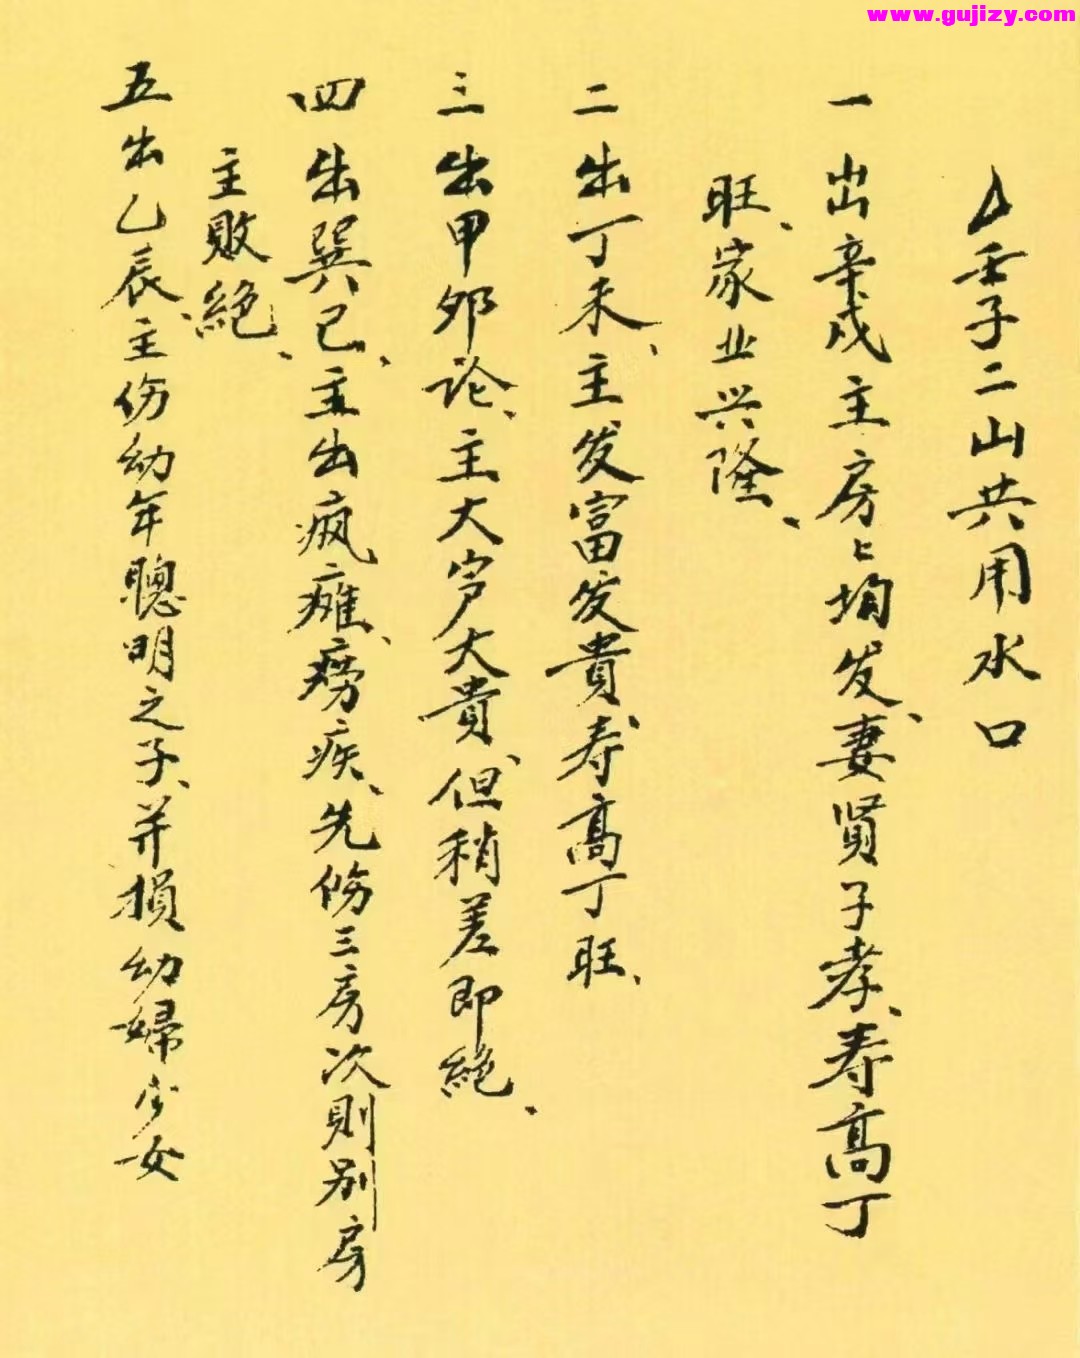 www.gujizy.com
△壬子二山共用水口
一出辛戌主房々均发、妻贤子孝、寿高丁
旺、家业兴隆、
二出丁未、主发富发貴、寿高丁旺、
三出甲卯论、主大富大貴、但稍差即絶、
四出巽巳、主出疯瘫、痨疾、先伤三房次則别房
主敗絕、
五出乙辰、主伤幼年聰明之子、并損幼婦少女